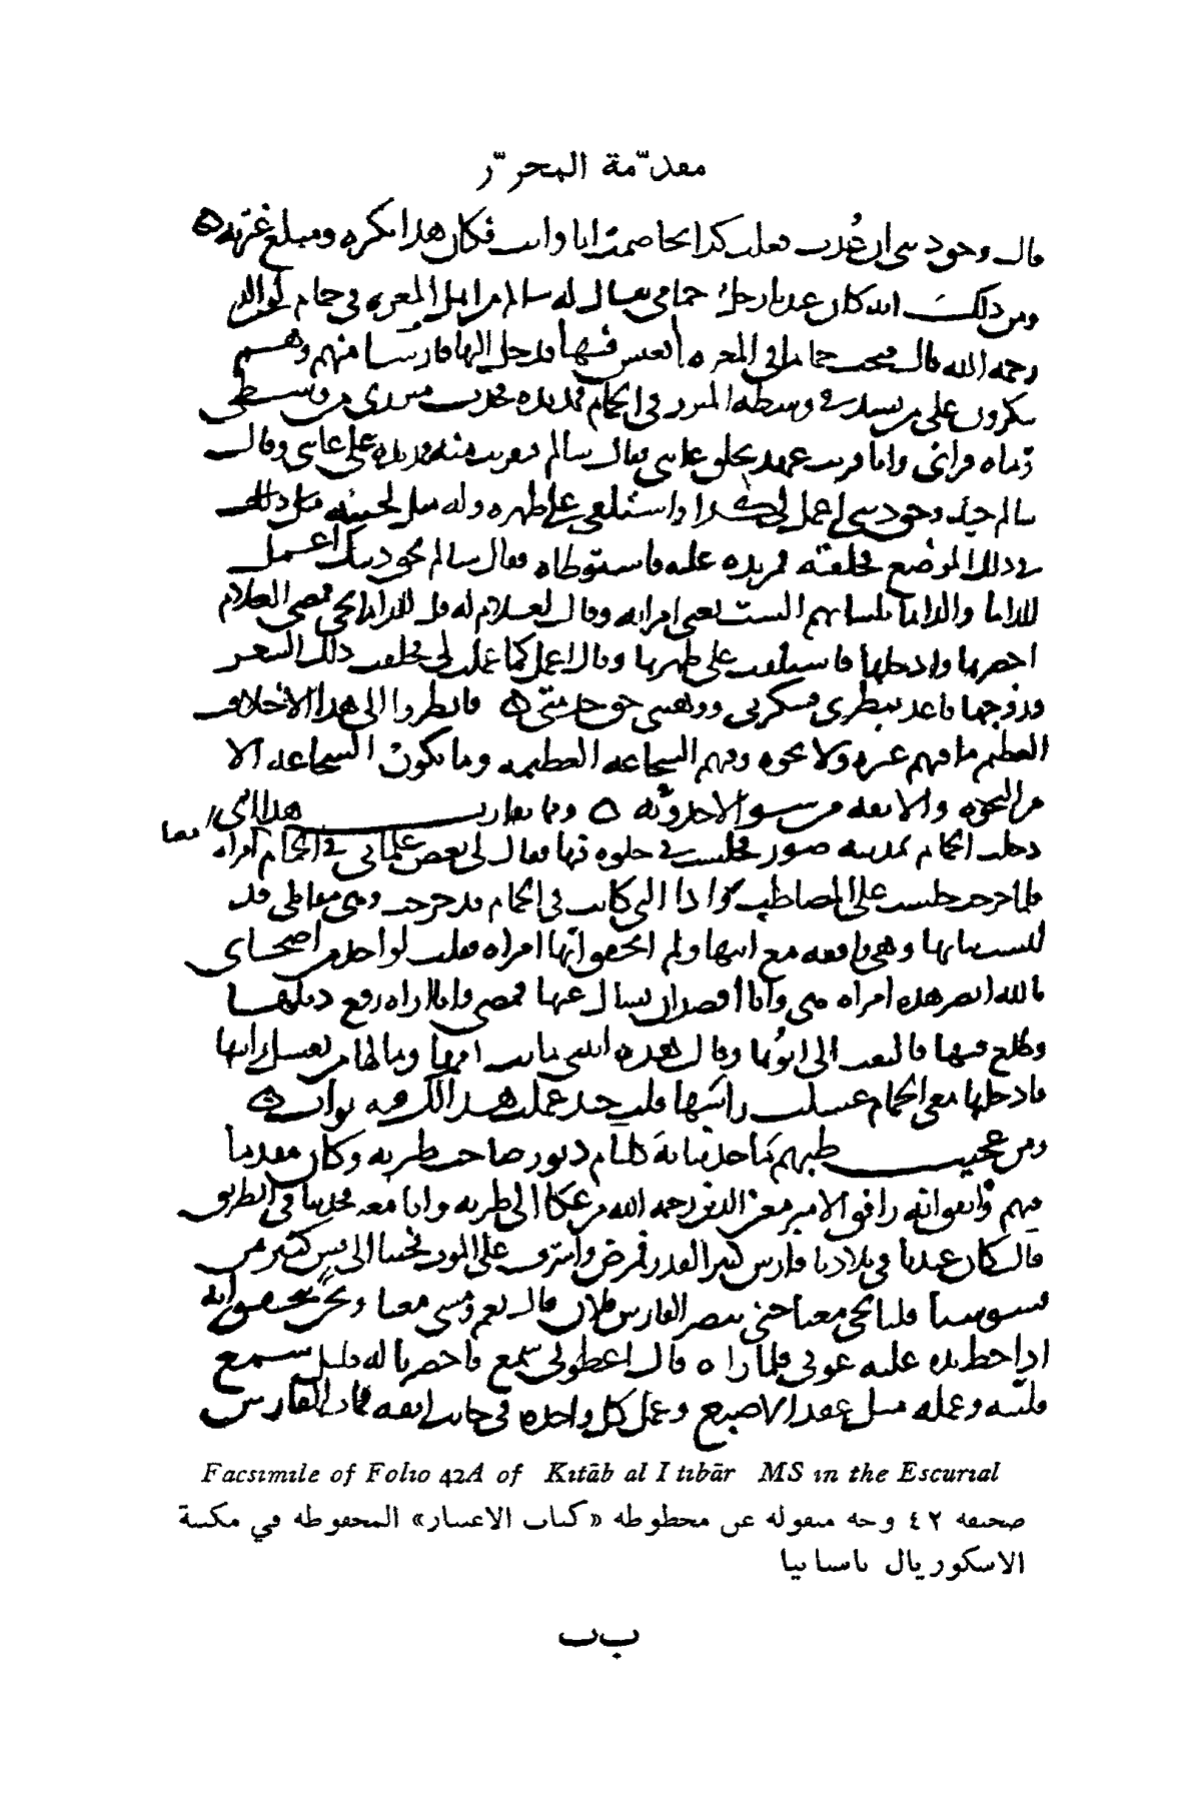 مقدّمة المحرّر
قال وحق ديني ان عدت فعلت كذا تخاصمت انا وانت فكان هذا نكيره ومبلغ غيرته ه
ومن ذلك انه كان عندنا رجل حمامي يقال له سالم من اهل المعره في حمام لوالدي
رحمه الله قال فتحت حماما في المعره اتعيش فيها فدخل اليها فارس منهم وهم
ينكرون على من يشد في وسطه المئزر في الحمام فمد يده فجذب مئزري من وسطي
رماه فراني وانا قريب عهد بحلق عانتي فقال سالم فتقربت منه فمد يده على عانتي وقال
سالم جيد وحق ديني اعمل لي كذا واستلقى على ظهره وله مثل لحيته مثل ذلك
في ذلك الموضع فحلقته فمر يده عليه فاستوطاه فقال سالم بحق دينك اعمل
للداما والداما بلسانهم الست يعني امراته وقال لغلام له قل للداما تجي فمضى الغلام
احضرها وادخلها فاستلقت على ظهرها وقال اعمل كما عملت لي فحلقت ذلك الشعر
وزوجها قاعد ينظرني فشكرني ووهبني حق خدمتي ه فانظروا الى هذا الاختلاف
العظيم ما فيهم غيره ولا نخوه وفيهم الشجاعه العظيمه وما تكون الشجاعه الا
من النخوه والانفه من سو الاحدوثه ه ومما يقارب هذا انني
دخلت الحمام بمدينه صور فجلست في خلوه فيها فقال لي بعض غلماني في الحمام امراه
معنا
فلما خرجت جلست على المصاطب واذا التي كانت في الحمام قد خرجت وهي مقابلي قد
لبست ثيابها وهي واقفه مع ابيها ولم اتحقق انها امراه فقلت لواحد من اصحابي
بالله ابصر هذه امراه هي وانا اقصد ان يسال عنها فمضى وانا اراه رفع ذيلها
وطلع فيها فالتفت الي ابوها وقال هذه ابنتي ماتت امها وما لها من يغسل راسها
فادخلتها معي الحمام غسلت راسها قلت جيد عملت هذا لك فيه ثواب ه
ومن عجيب طبهم ما حدثنا به كليام دبور صاحب طبريه وكان مقدما
فيهم واتفق انه رافق الامير معين الدين رحمه الله من عكا الى طبريه وانا معه فحدثنا في الطريق
قال كان عندنا في بلادنا فارس كبير القدر فمرض واشرف على الموت فجئنا الى قس كبير من
قسوسنا قلنا تجي معنا حتى تبصر الفارس فلان قال نعم ومشى معنا ونحن نتحقق انه
اذا حط يده عليه عوفي فلما راه قال اعطوني شمع فاحضرنا له قليل شمع
فلينه وعمله مثل عقد الاصبع وعمل كل واحده في جانب انفه فمات الفارس
Facsimile of Folio 42A of Kitāb al I tibār MS in the Escurial
صحيفة ٤٢ وجه منقولة عن مخطوطة «كتاب الاعتبار» المحفوظة في مكتبة
الاسكوريال باسبانيا
ب ب